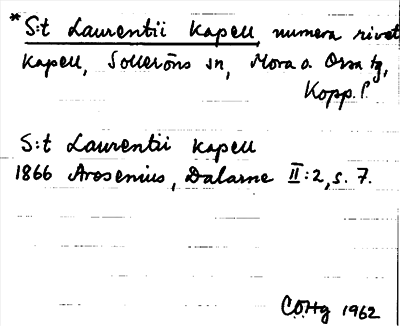 *S:t Laurentii kapell, numera rivet
kapell, Solleröns sn, Mora o. Orsa tg,
Kopp. l.
S:t Laurentii kapell
1866 Arosenius, Dalarne II:2, s. 7.
COHg 1962